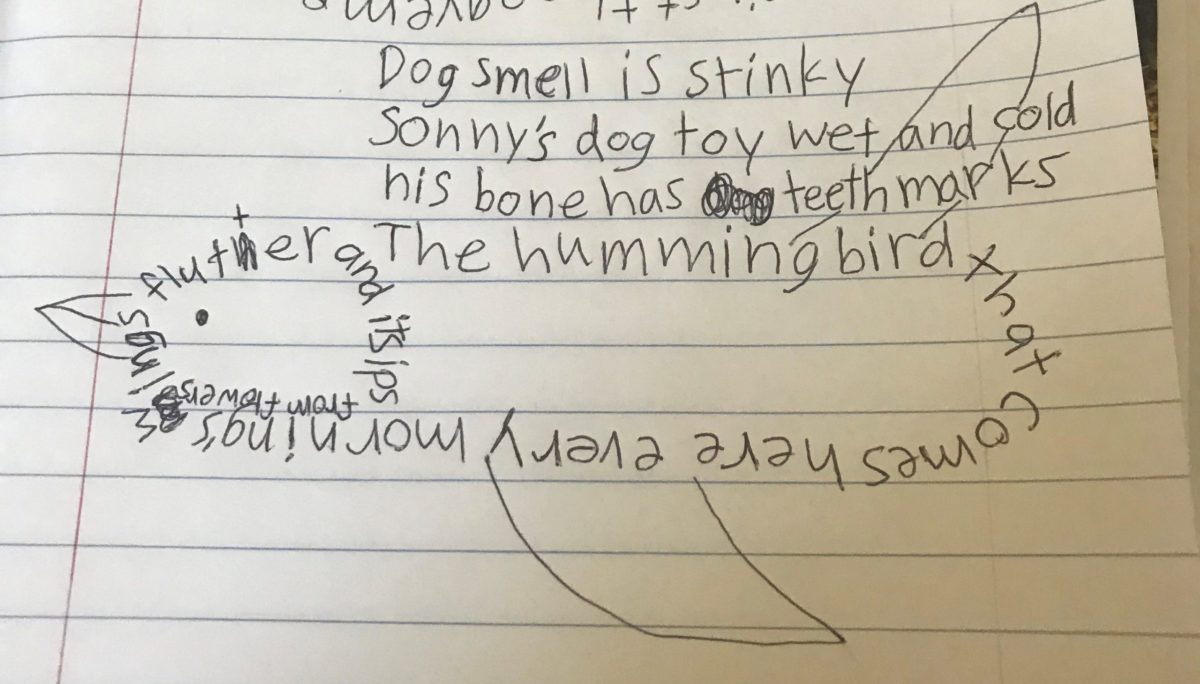 Dog smell is stinky
Sonny's dog toy wet and cold
his bone has teeth marks
The hummingbird
that
comes here every mornings
wings
flutter
and it sips
from flowers